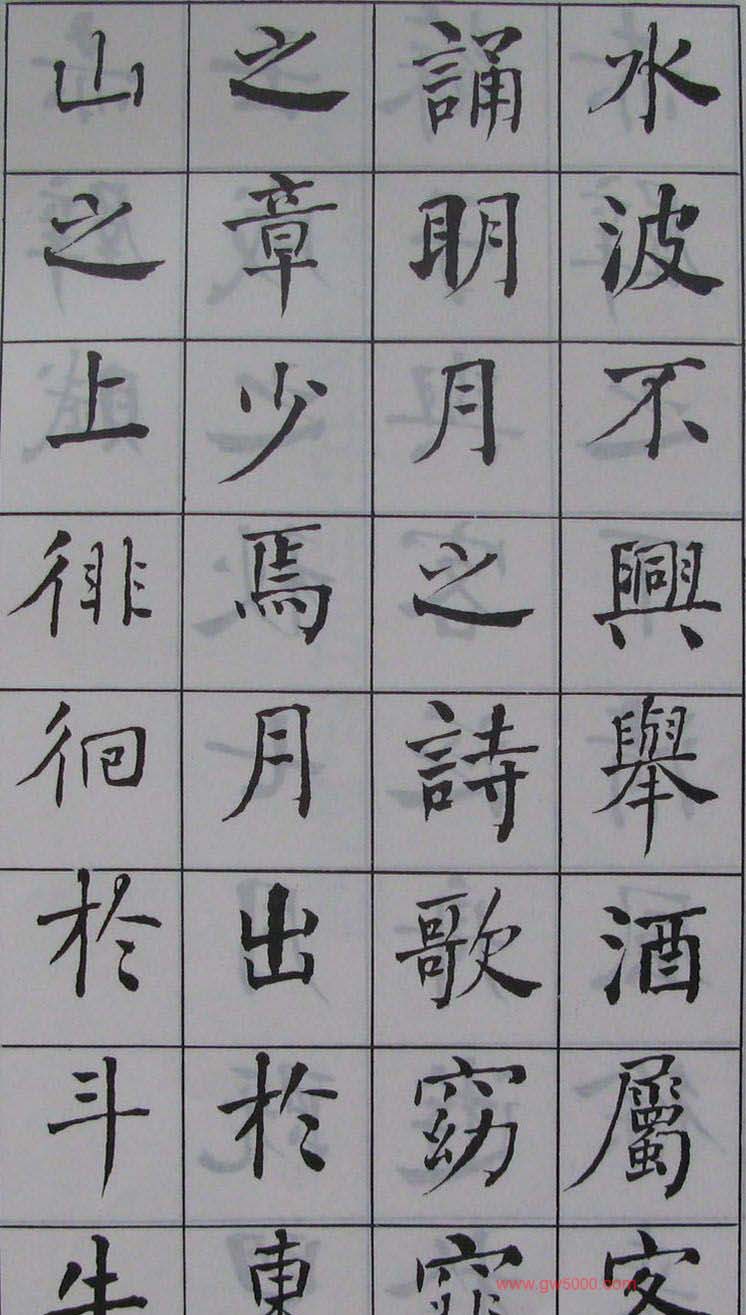 水波不興舉酒屬客
誦明月之詩歌窈窕
之章少焉月出於東
山之上徘徊於斗牛
www.gw5000.com